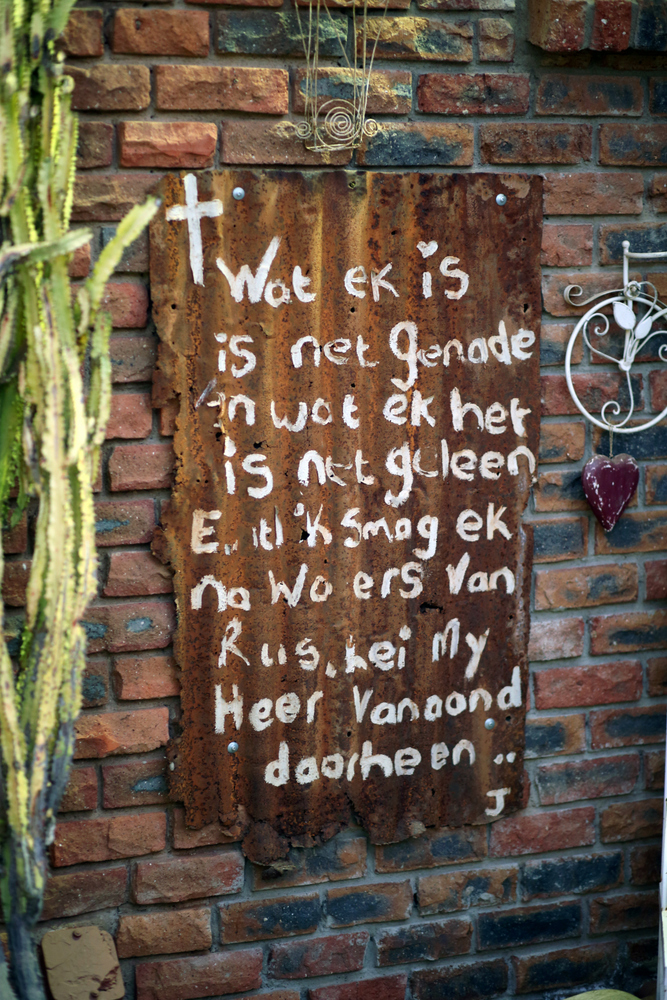 Wat ek is
is net genade
en wat ek het
is net geleen
Eintlik Smag ek
na Waters Van
Rus, lei My
Heer Vanaand
daarheen ..
J